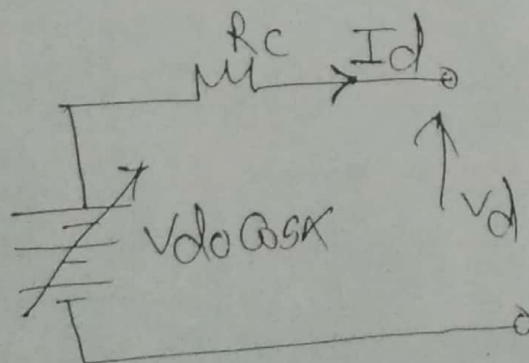 Rc
Id
Vdo Cosα
Vd